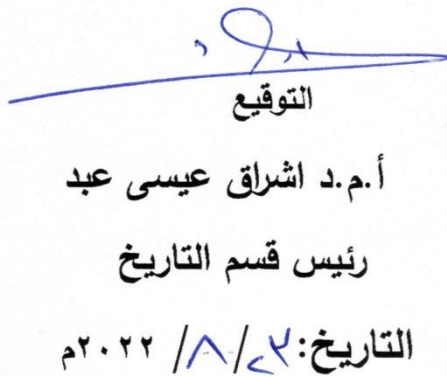 التوقيع
أ.م.د اشراق عيسى عبد
رئيس قسم التاريخ
التاريخ: ٢٣/٨/ ٢٠٢٢م